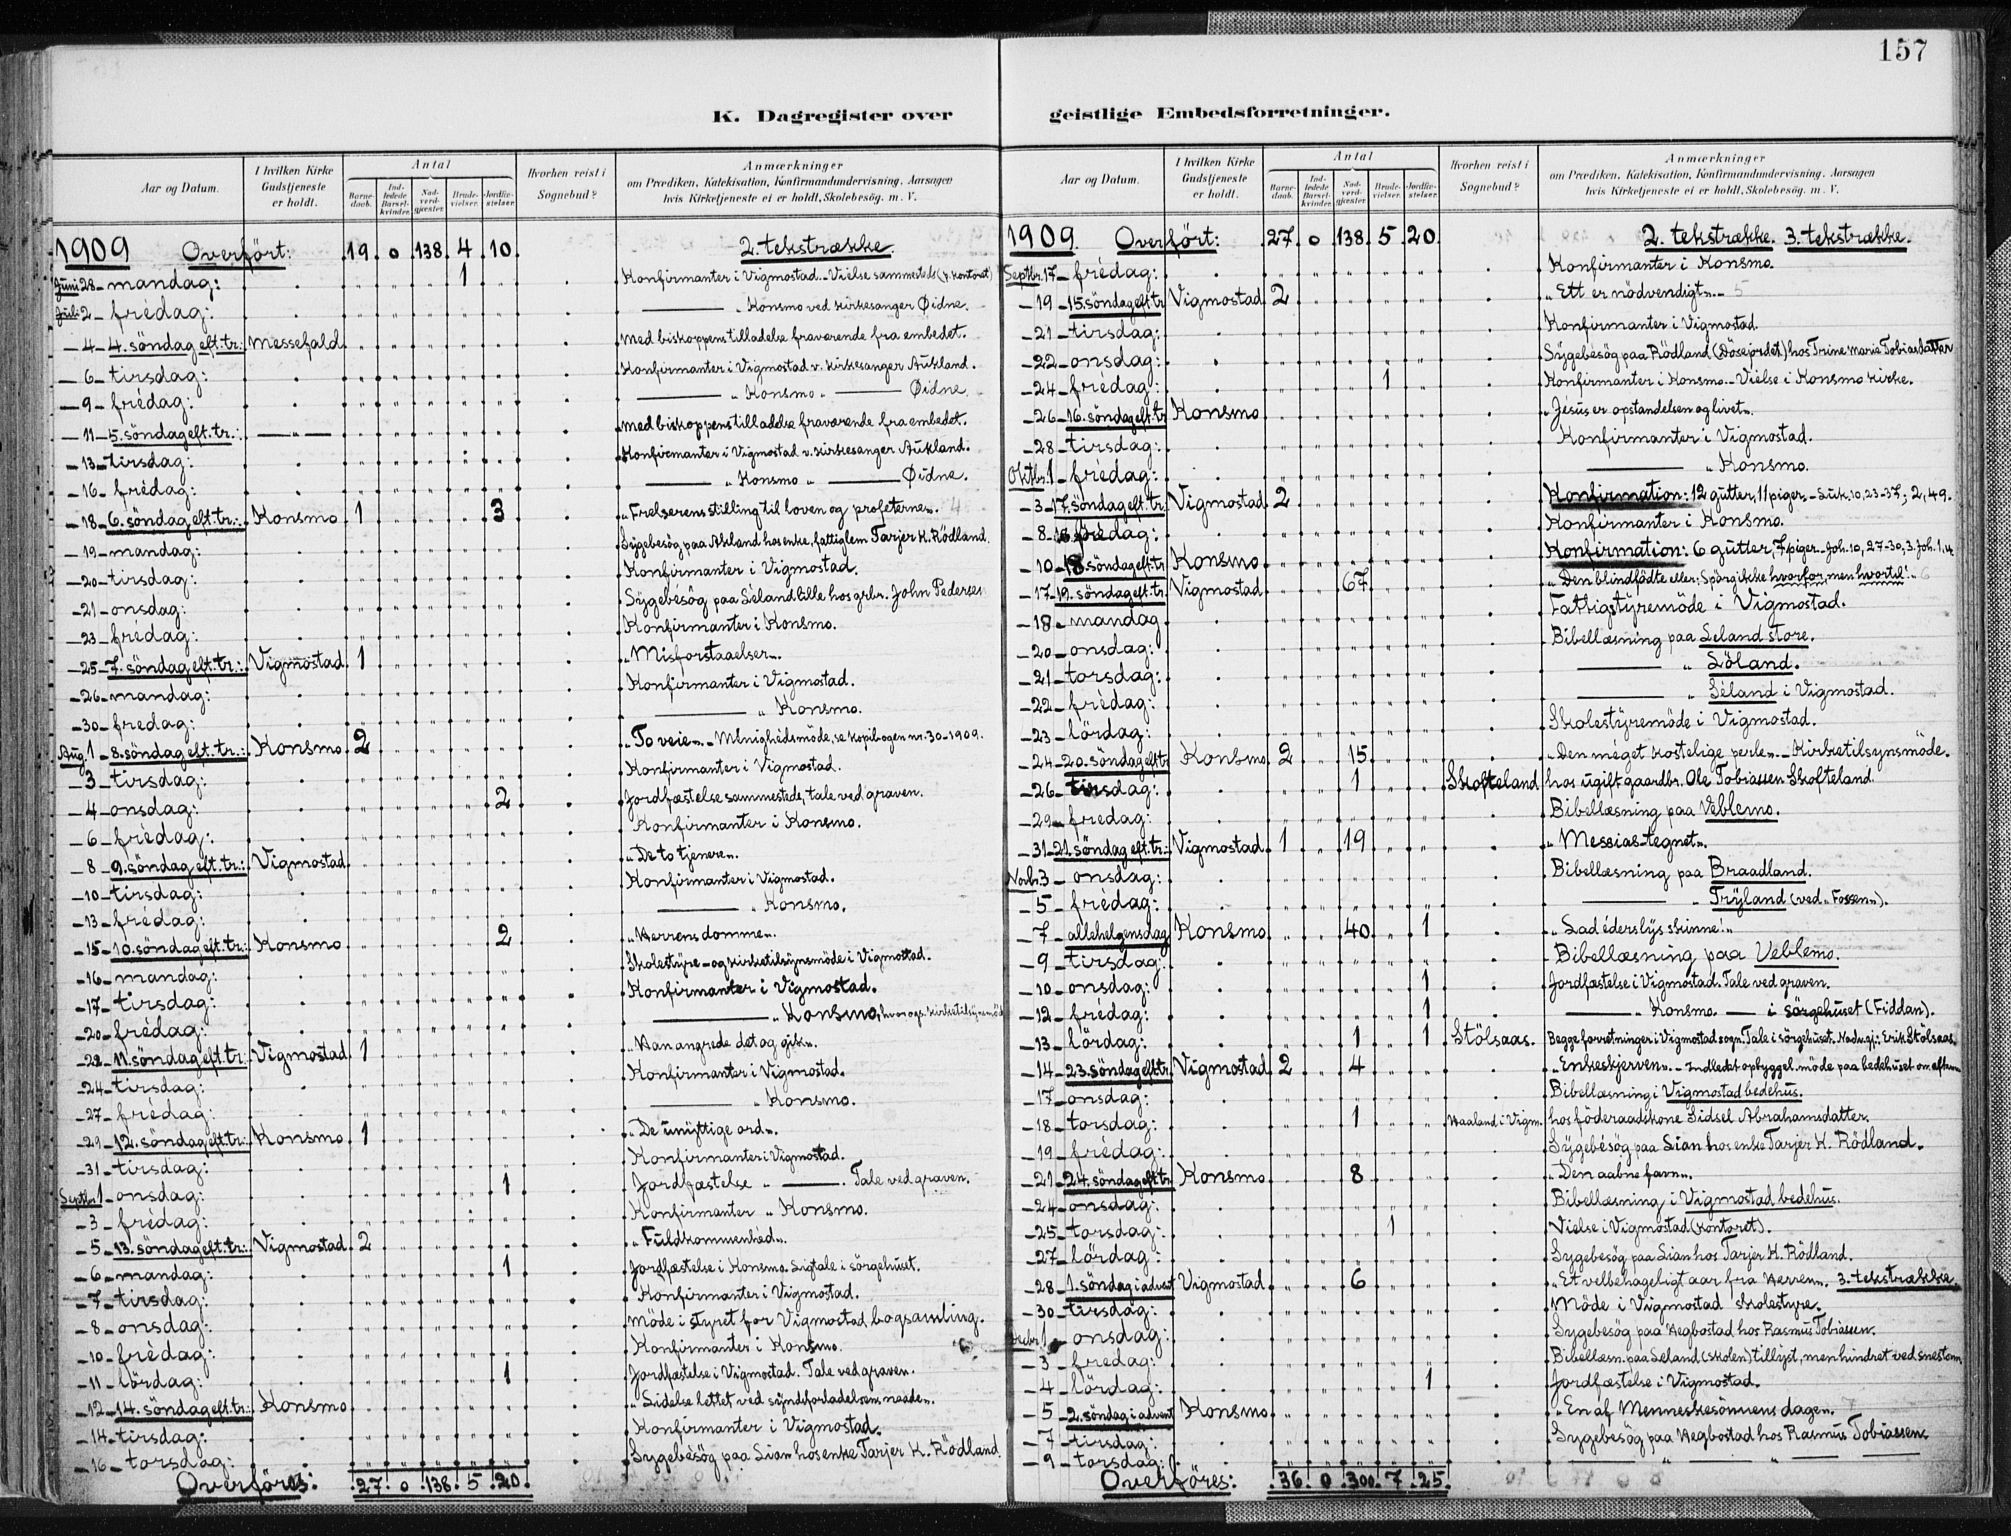 157
K. Dagregister over geistlige Embedsforretninger.
Aar og Datum. | I hvilken Kirke Gudstjeneste er holdt. | Antal | Barnedaab. | Indledede Barselkvinder. | Nadverdgjæster. | Brudevielser. | Jordfæstelser. | Hvorhen reist i Sognebud? | Anmærkninger om Prædiken, Katekisation, Konfirmandundervisning, Aarsagen hvis Kirketjeneste ei er holdt, Skolebesøg. m. V.
1909 Overfört: 19 0 138 4 10 2. tekstrække.
Juni 28 - mandag: 1 Konfirmanter i Vigmostad. - Vielse sammesteds (p. kontoret)
Juli 2 - frédag: — „ Konsmo ved kirkesanger Øidne.
- 4 - 4. söndag eft. tr.: Messefald. Med biskoppens tilladelse fraværende fra embedet.
- 6 - tirsdag: Konfirmanter i Vigmostad v. kirkesanger Aukland.
- 9 - frédag: — „ Konsmo „ — Øidne.
- 11 - 5. söndag eft. tr.: — „ — Med biskoppens tilladelse fraværende fra embedet.
- 13 - tirsdag: Konfirmanter i Vigmostad v. kirkesanger Aukland.
- 16 - frédag: — „ Konsmo „ — Øidne.
- 18 - 6. söndag eft. tr.: Konsmo 1 3 „Frelserens stilling til loven og profeterne". 4
- 19 - mandag: Sygebesög paa Akland hos enke, fattiglem Tarjer K. Rödland.
- 20 - tirsdag: Konfirmanter i Vigmostad.
- 21 - onsdag: Sygebesög paa Séland lille hos grbr. John Pedersen
- 23 - frédag: Konfirmanter i Konsmo.
- 25 - 7. söndag eft. tr.: Vigmostad 1 „Misforstaaelser".
- 26 - mandag: Konfirmanter i Vigmostad.
- 30 - fredag: — „ Konsmo.
Aug. 1 - 8. söndag eft. tr.: Konsmo 2 „To veie". - Ménighédsmöde, se kopibogen nr. 30 - 1909.
- 3 - tirsdag: Konfirmanter i Vigmostad.
- 4 - onsdag: 2 Jordfæstelse sammesteds, tale ved graven.
- 6 - frédag: Konfirmanter i Konsmo.
- 8 - 9. söndag eft. tr.: Vigmostad „De to tjenere".
- 10 - tirsdag: Konfirmanter i Vigmostad.
- 13 - frédag: — „ Konsmo.
- 15 - 10. söndag eft. tr.: Konsmo 2 „Herrens domme".
- 16 - mandag: Skolestyre - og kirketilsynsmöde i Vigmostad.
- 17 - tirsdag: Konfirmanter i Vigmostad.
- 20 - frédag: — „ Konsmo, hvor ogs. kirketilsynsmöde
- 22 - 11. söndag eft. tr.: Vigmostad 1 „Han angrede det og gik".
- 24 - tirsdag: Konfirmanter i Vigmostad.
- 27 - frédag: — „ Konsmo.
- 29 - 12. söndag eft. tr.: Konsmo 1 „De unyttige ord".
- 31 - tirsdag: Konfirmanter i Vigmostad.
Septbr. 1 - onsdag: 1 Jordfæstelse „ — . Tale ved graven.
- 3 - frédag: Konfirmanter „ Konsmo.
- 5 - 13. söndag eft. tr.: Vigmostad 2 „Fuldkommenhéd".
- 6 - mandag: 1 Jordfæstelse i Konsmo. Ligtale i sörgehuset.
- 7 - tirsdag: Konfirmanter i Vigmostad.
- 8 - onsdag: Möde i styret for Vigmostad bogsamling.
- 10 - frédag: Konfirmanter i Konsmo.
- 11 - lördag: 1 Jordfæstelse i Vigmostad. Tale ved graven.
- 12 - 14. söndag eft. tr.: Konsmo „Lidelse lettet ved syndsforladelsens naade".
- 14 - tirsdag: Konfirmanter i Vigmostad.
- 16 - torsdag: Sygebesög paa Lian hos enke Tarjer K. Rödland
Overföres: 27 0 138 5 20
Aar og Datum. | I hvilken Kirke Gudstjeneste er holdt. | Antal | Barnedaab. | Indledede Barselkvinder. | Nadverdgjæster. | Brudevielser. | Jordfæstelser. | Hvorhen reist i Sognebud? | Anmærkninger om Prædiken, Katekisation, Konfirmandundervisning, Aarsagen hvis Kirketjeneste ei er holdt, Skolebesøg. m. V.
1909 Overfört: 27 0 138 5 20 2. tekstrække. 3. tekstrække.
Septbr. 17 - frédag: Konfirmanter i Konsmo.
- 19 - 15. söndag eft. tr Vigmostad 2 „Ett er nödvendigt". - 5
- 21 - tirsdag: Konfirmanter i Vigmostad.
- 22 - onsdag: Sygebesög paa Rödland (Dösejordet) hos Trine Marie Tobiasdatter
- 24 - frédag: 1 Konfirmanter i Konsmo. - Vielse i Konsmo kirke.
- 26 - 16. söndag eft. tr Konsmo „Jésus er opstandelsen og livet".
- 28 - tirsdag: Konfirmanter i Vigmostad.
Oktbr. 1 - frédag: — „ Konsmo.
- 3 - 17. söndag eft. tr. Vigmostad 2 Konfirmation: 12 gutter, 11 piger. - Luk. 10, 23-37; 2, 49.
- 8 - frédag: Konfirmanter i Konsmo.
- 10 - 18 söndag eft. tr Konsmo Konfirmation: 6 gutter, 7 piger. - Joh. 10, 27-30, 3. Joh. 1, 4
- 17 - 19. söndag eft. tr. Vigmostad 67 „Den blindfödte eller: Spörg ikke hvorfor, men hvortil!" 6
- 18 - mandag Fattigstyremöde i Vigmostad.
- 20 - onsdag: Bibellæsning paa Leland store.
- 21 - torsdag: — „ Löland.
- 22 - frédag: — „ Séland i Vigmostad.
- 23 - lördag: Skolestyremöde i Vigmostad.
- 24 - 20. söndag eft tr Konsmo 2 15 „Den méget kostelige perle". - Kirketilsynsmöde.
- 26 - tirsdag: 1 Skofteland hos ugift gaardbr. Ole Tobiassen Skofteland.
- 29 - fredag: Bibellæsning paa Veblemo.
- 31 - 21. söndag eft. tr.: Vigmostad 1 19 „Messias-tegnet".
Novbr. 3 - onsdag: Bibellæsning paa Braadland.
- 5 - frédag: — „ Tryland (ved „Fossen").
- 7 - allehelgensdag Konsmo 40 1 „Lad éders lys skinne!"
- 9 - tirsdag: Bibellæsning paa Veblemo.
- 10 - onsdag: 1 Jordfæstelse i Vigmostad. Tale ved graven.
- 12 - frédag: 1 — „ Konsmo. — i sörgehuset (Fiddan).
- 13 - lördag: 1 1 Stölsaas. Begge forretninger i Vigmostad sogn. Tale i sörgehuset. Nadvgj.: Erik Stölsaas.
- 14 - 23. söndag eft. tr. Vigmostad 2 4 „Enkeskjerven". - Indledet opbyggel. möde paa bedehuset om aftenen
- 17 - onsdag: Bibellæsning i Vigmostad bedehus.
- 18 - torsdag: 1 Haaland i Vigm. hos föderaadskone Sidsel Abrahamsdatter.
- 19 - frédag: Sygebésög paa Lian hos enke Tarjer K. Rödland.
- 21 - 24. söndag eft. tr. Konsmo 8 „Den aabne favn".
- 24 - onsdag: Bibellæsning i Vigmostad bedehus.
- 25 - torsdag: 1 Vielse i Vigmostad (kontoret).
- 27 - lördag: Sygebesög paa Lian hos Tarjer K. Rödland.
- 28 - 1. söndag i advent Vigmostad 6 „Et velbehageligt aar fra Herren". 3. tekstrække.
- 30 - tirsdag: Möde i Vigmostad skolestyre.
Decbr. 1 - onsdag: Sygebesög paa Hegbostad hos Rasmus Tobiassen.
- 3 - fredag: Bibellæsn. paa Leland (skolen) tillyst, men hindret ved snestorm
- 4 - lördag: 1 Jordfæstelse i Vigmostad.
- 5 - 2. söndag i advent Konsmo „En af Menneskesönnens dage".
- 7 - tirsdag: Sygebesög paa Hegbostad hos Rasmus Tobiassen.
- 9 - torsdag: — „ — „ —
Overföres: 36 0 300 7 25